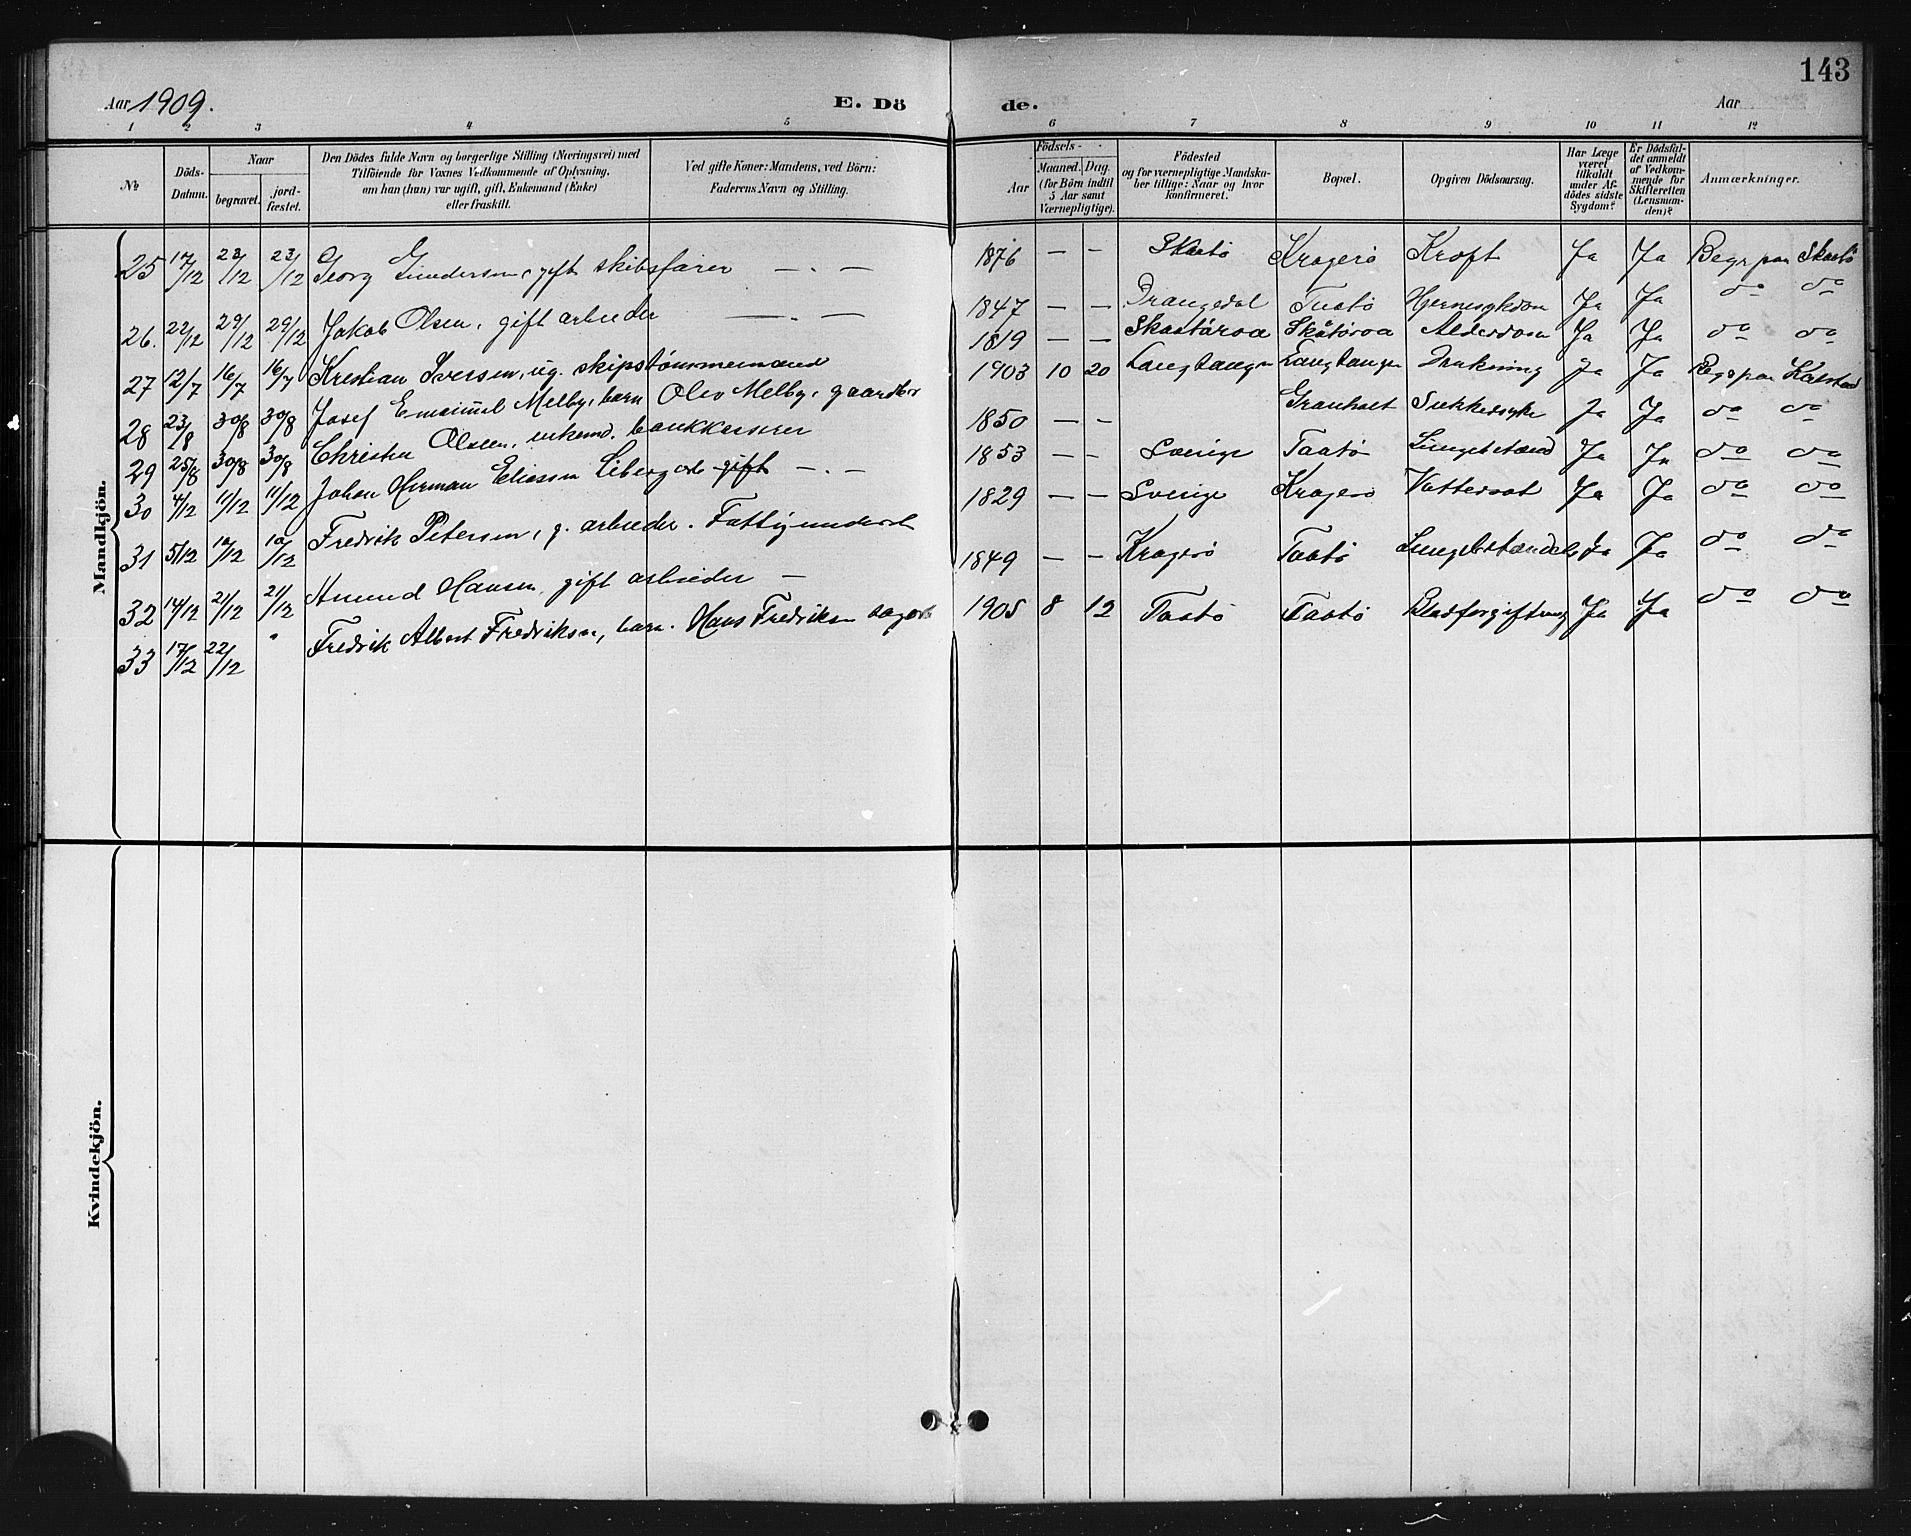 143
Aar 1909. E. Dö de. Aar
1 2 3 4 5 6 7 8 9 10 11 12
№ Döds-Datum. Naar begravet. jord-fæstet. Den Dödes fulde Navn og borgerlige Stilling (Næringsvei) med Tilföiende for Voxnes Vedkommende af Oplysning, om han (hun) var ugift, gift, Enkemand (Enke) eller fraskilt. Ved gifte Koner: Mandens, ved Börn: Faderens Navn og Stilling. Aar Födsels- Maaned. Dag. (for Börn indtil 5 Aar samt Værnepligtige). Födested og for værnepligtige Mandskaber tillige: Naar og hvor konfirmeret. Bopæl. Opgiven Dödsaarsag. Har Læge været tilkaldt under Afdödes sidste Sygdom? Er Dödsfaldet anmeldt af Vedkommende for Skifteretten (Lensmanden)? Anmærkninger.
Mandkjön.
25 17/12 23/12 23/12 Georg Gundersen, gift skibsfører — . — 1876 — — Skaatø Kragerø Kræft Ja Ja Begr paa Skaatø
26. 22/12 29/12 29/12 Jakob Olsen, gift arbeider — . — 1847 — — Drangedal Taatø Hjernesykdom Ja Ja do do
27 12/7 16/7 16/7 Kristian Iversen, ug. skipstømmermand 1819 — — Skaatøroa Skåtøroa Alderdom Ja Ja do do
28 23/8 30/8 30/8 Josef Emanuel Melby, barn Olev Melby, gaardbr 1903 10 20 Langtangen Langtangen Drukning Ja Ja Begr paa Kalstad
29 25/8 30/8 30/8 Christen Olsen, enkemd. bankkasserer 1850 — — Granholt Sukkersyke Ja Ja do do
30 4/12 11/12 11/12 Johan Herman Eliassen Liberg arb gift — . — 1853 — — Sverige Taatø Lungebetænd Ja Ja do do
31 5/12 10/12 10/12 Fredrik Petersen, g. arbeider. Fattigunderst 1829 — — Sverige Kragerø Vattersot Ja Ja do do
32 14/12 21/12 21/12 Amund Hansen, gift arbeider — 1849 — — Kragerø Taatø Lungebetændelse Ja Ja do do
33 17/12 22/12 " Fredrik Albert Fredriksen, barn. Hans Fredriksen 1905 8 12 Taatø Taatø Blodforgiftning Ja Ja do do
Kvindekjön.